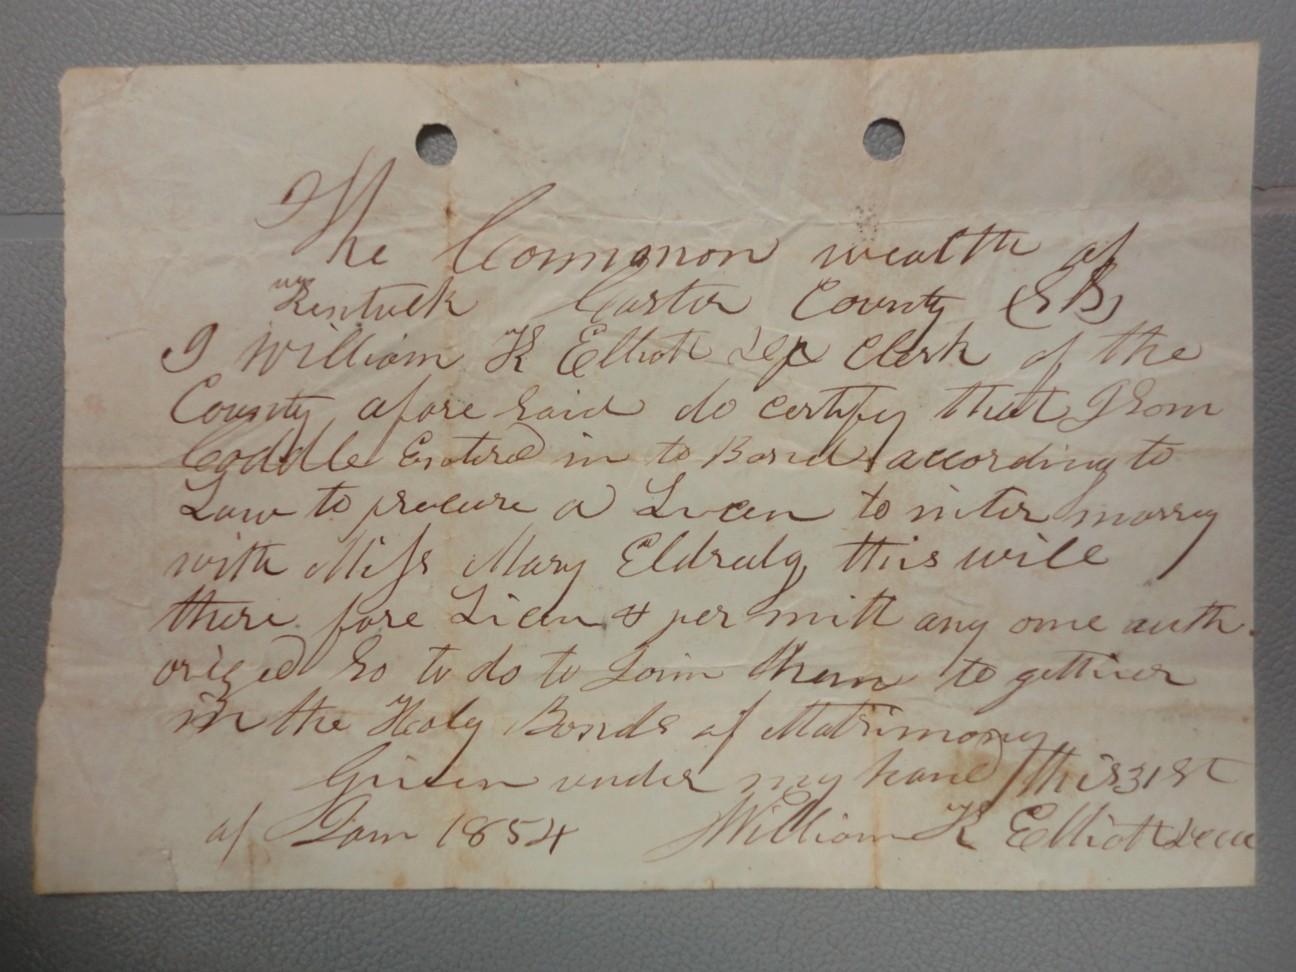 The Common wealth of
Kentuck Carter County (SB)
I William K Elliott Dep Clerk of the
County afore said do certify that Isom
Coddle Entered in to Bond according to
Law to procure a Licen to inter marry
with Miss Mary Eldredg this will
there fore Licen & permitt any one auth
orized so to do to Join them to gether
in the Holy Bonds of Matrimony
Given under my hand this 31st
of Jan 1854 William K Elliott